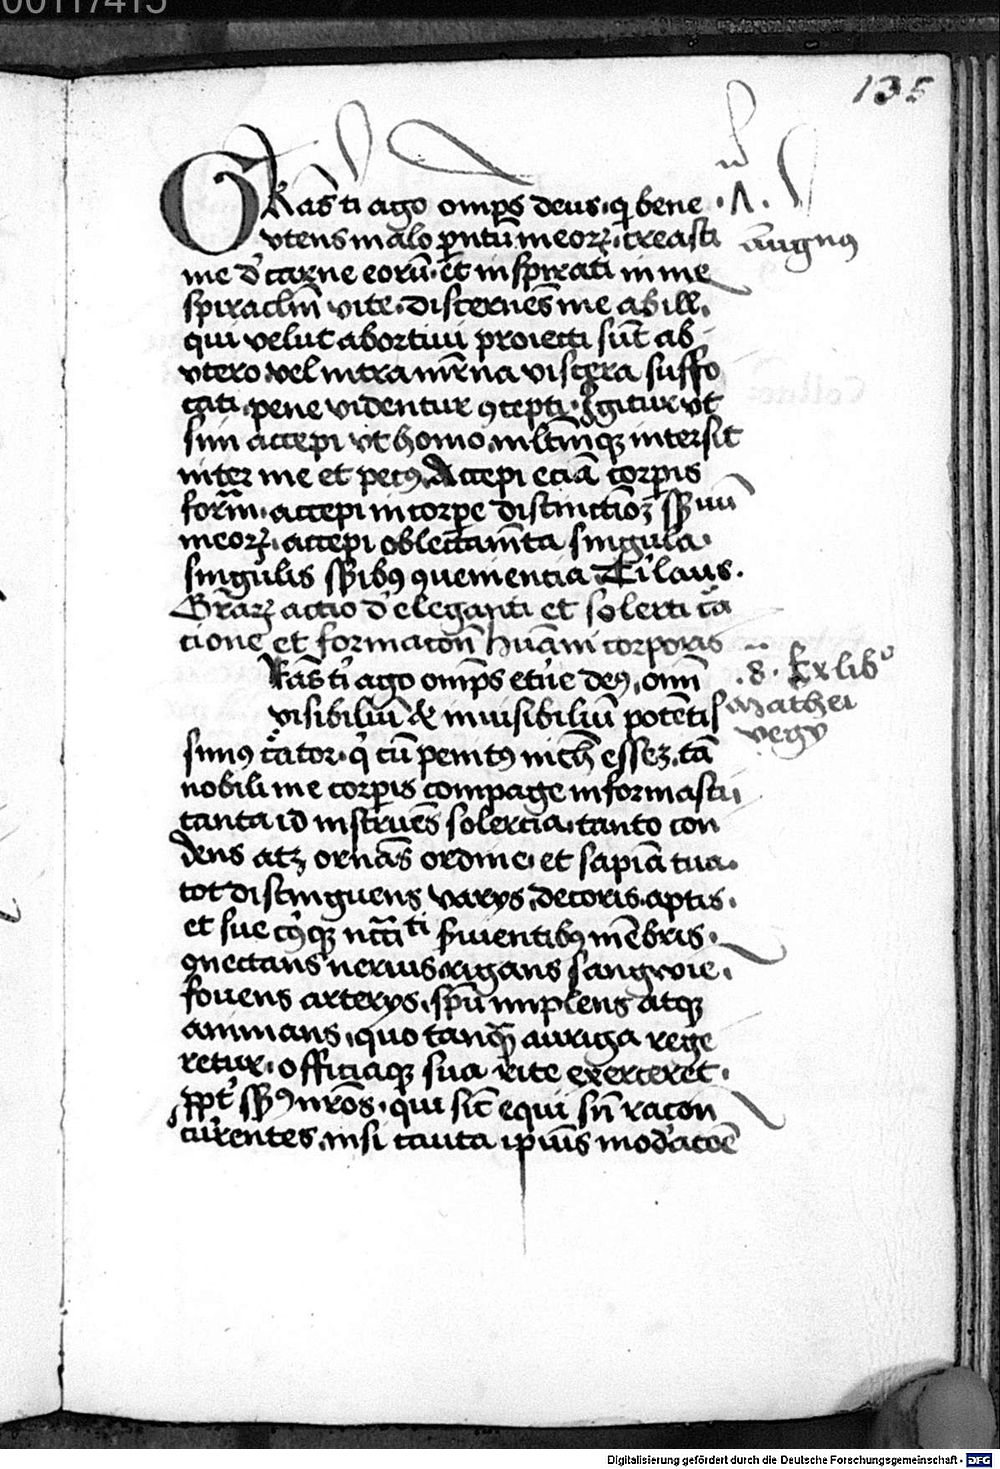 135
GRãs ti ago omps deus· q bene
utens malo pñtũ meoꝝ· creasti
me d' carne eorũ· et inspirasti in me
spiraclm̃ vite· discernẽs me ab ill·
qui velut abortivi proiecti sũt ab
utero· vel intra mr̃na viscera suffo
cati· pene videntur ꝯcepti· Igitur ut
sim accepi ut homo· mltm̃qꝫ intersit
inter me et pecꝰ· Accepi eciã corpis
formã· accepi in corpe distinctiõꝫ
meoꝝ· accepi oblectamẽta singula·
singulis ꝯuenientia· Ti laus·
Gr̃aꝝ actio d' eleganti et solerti c̃a
tione et formacõn hũani corporis
Rãs ti ago omps et̃ne deꝰ· om̃
visibiliũ & invisibiliũ potẽtis
simꝰ c̃ator· q cũ penitꝰ nich̃ esseꝫ· tã
nobili me corpis compage informasti
tanta id instruẽs solercia· tanto con
dens atꝫ ornãs ordine· et sapiã tua·
tot distinguens varys decoris aptis·
et sue cꝰqꝫ mẽbris·
ꝯnectans nervis· rigans sangwie·
fovens arterys· spũ implens atqꝫ
animans· quo tanqꝫ auriga rege
retur· officiaqꝫ sua rite exerceret·
nr̃os· qui sic̃ equi sñ racon
currentes· nisi cauta ipius mod'acõe
·A·
Augꝰ
·8· Ex libº
Mathei
vegy
Digitalisierung gefördert durch die Deutsche Forschungsgemeinschaft - DFG